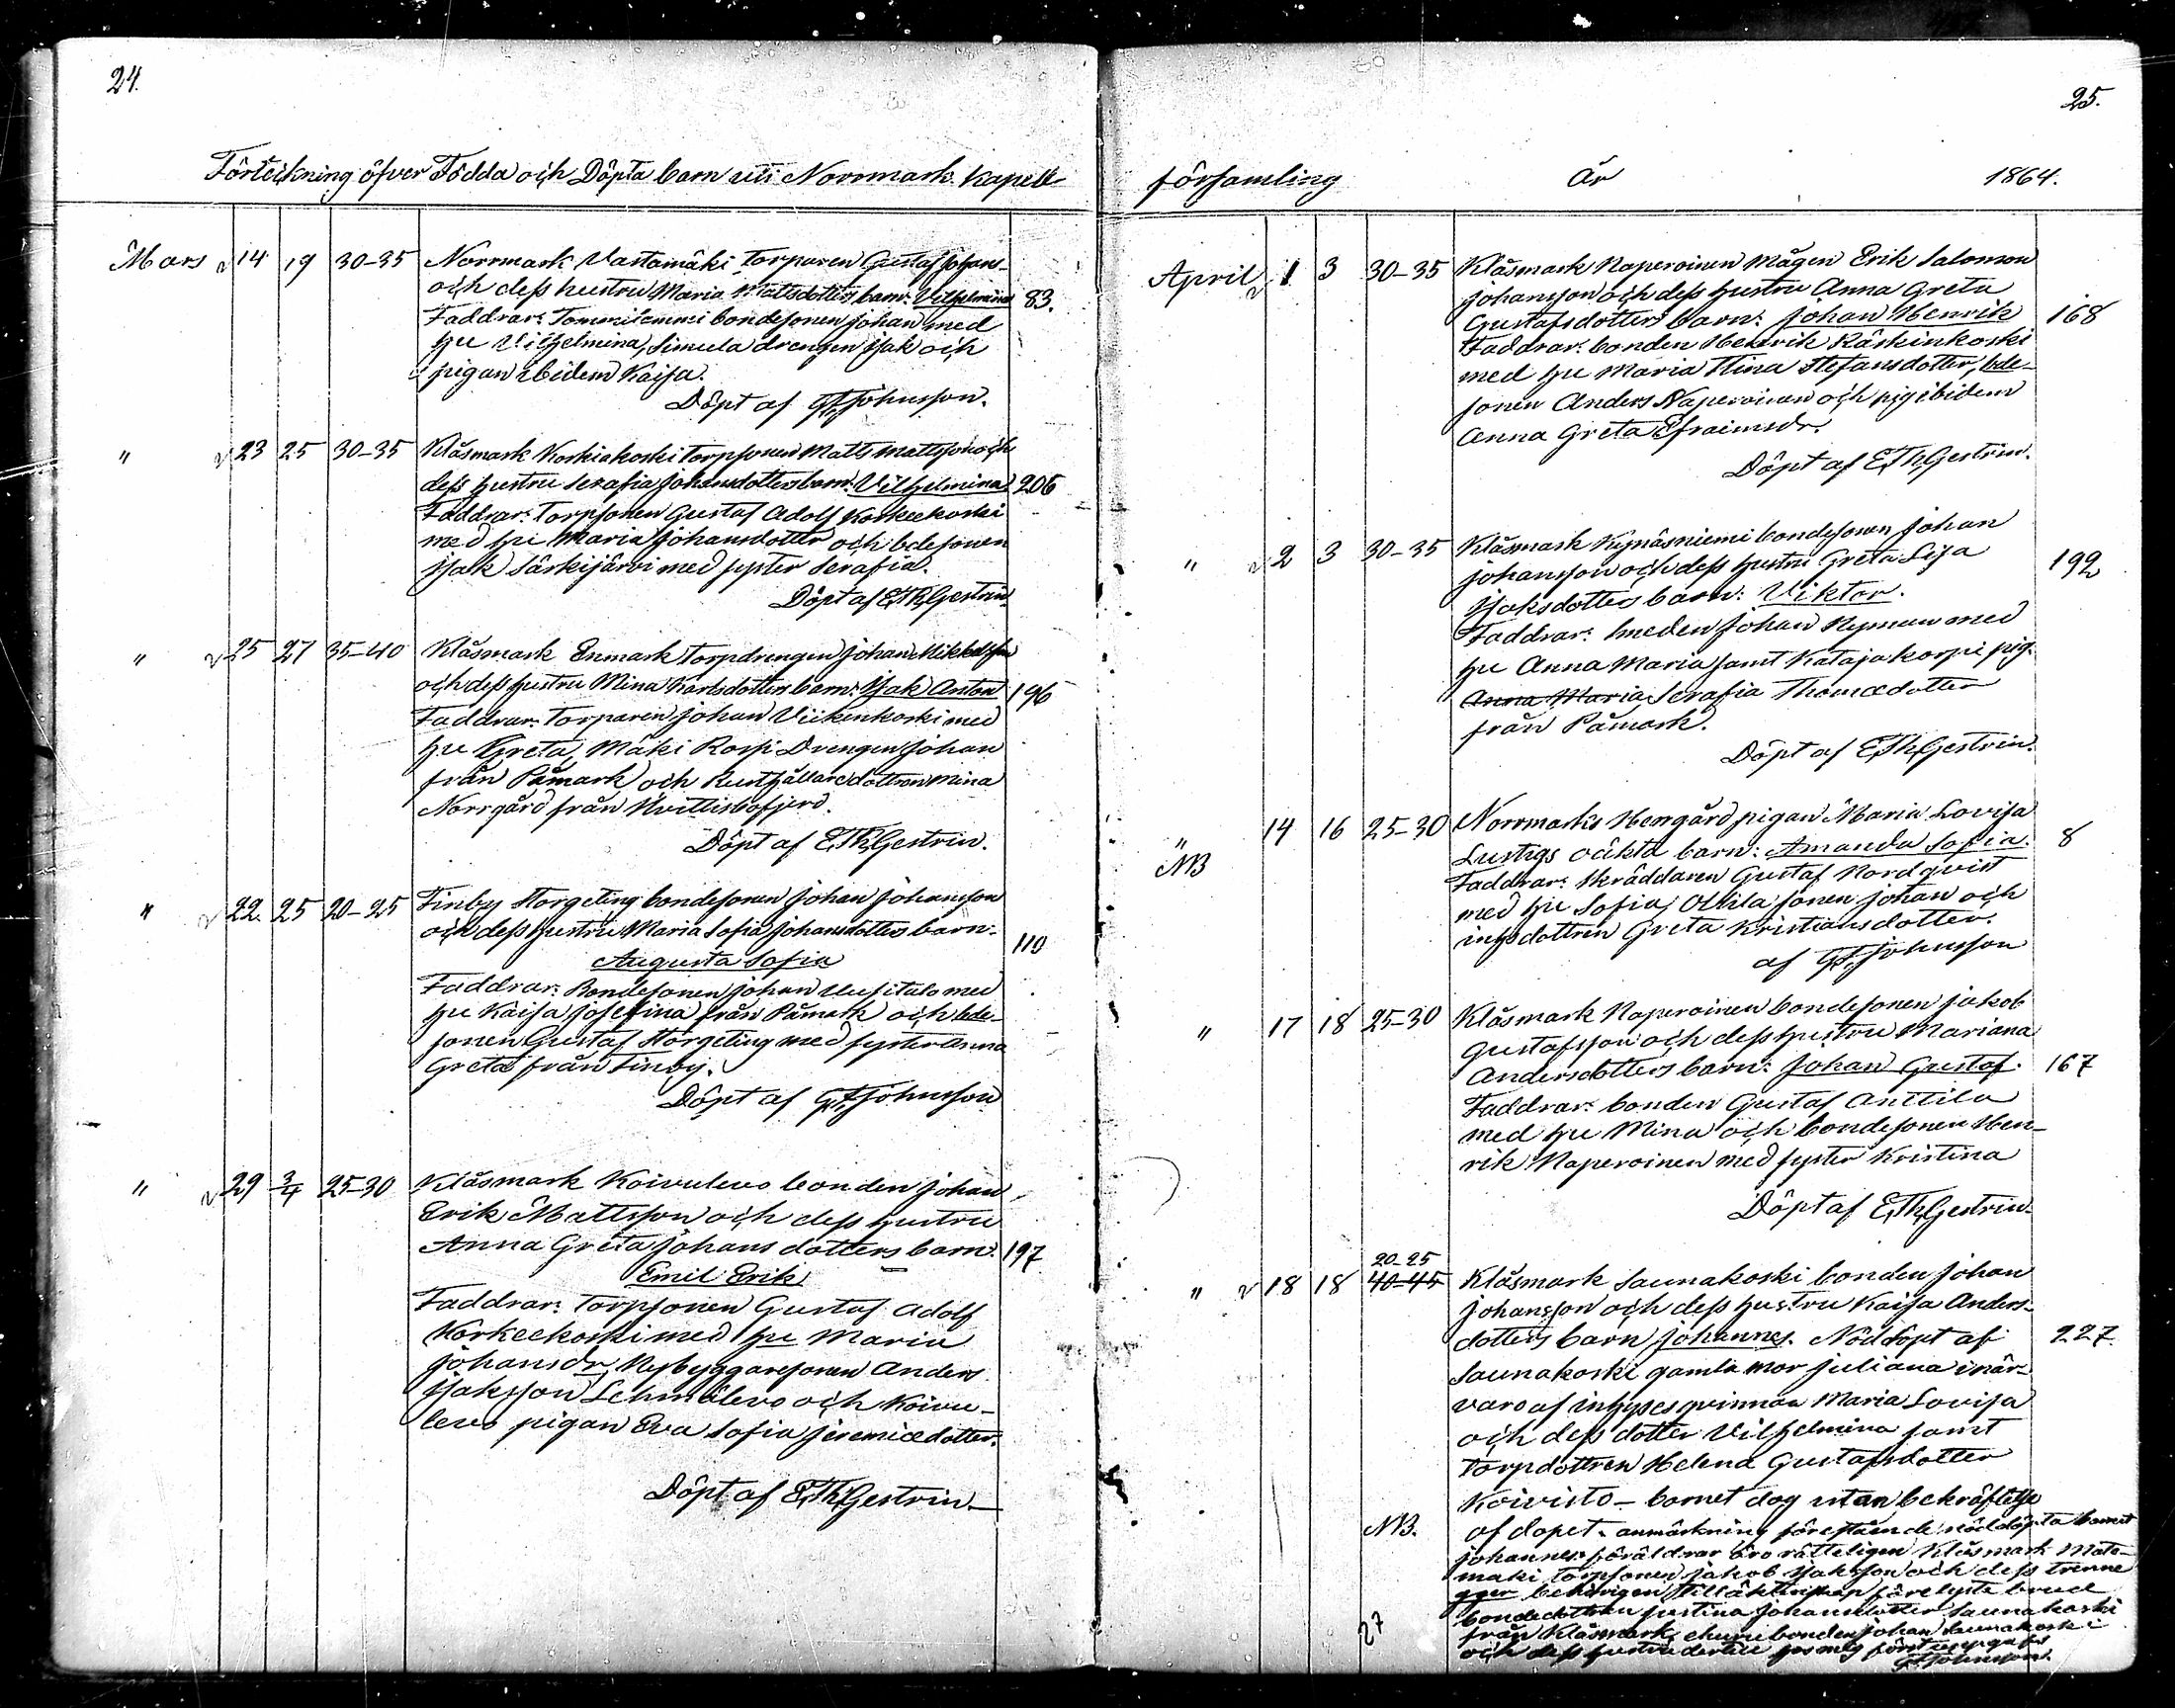 24.
Förteckning öfver Födda och Döpta barn uti Norrmark Kapell-
Mars 14 19 30-35 Norrmark Vastamäki torparen Gustaf Johans-
och dess hustru Maria Mattsdotters barn: Vilhelmina 83.
Faddrar: Tommilammi bondesonen Johan med
hu Vilhelmina, Simula drengen Isak och
pigan ibidem Kaisa.
Döpt af G F Johnsson.
" 23 25 30-35 Klåsmark Koskiakoski torpsonen Matts Mattsson och
dess hustru Serafia Johansdotters barn: Vilhelmina 206
Faddrar: Torpsonen Gustaf Adolf Korkeekoski
med hu Maria Johansdotter och bdesonen
Isak Särkijärvi med syster Serafia.
Döpt af E Th Gestrin.
" 25 27 35-40 Klåsmark Enmark torpdrengen Johan Mikkelsson
och dess hustru Mina Karlsdotters barn: Isak Anton 196
Faddrar: Torparen Johan Viikenkoski med
hu Greta, Mäki Korpi Drengen Johan
från Påmark och Rusthållaredottren Mina
Norrgård från Hvittisbofjerd.
Döpt af E Th Gestrin.
" 22. 25 20-25 Finby Storgeting bondesonen Johan Johansson
och dess hustru Maria Sofia Johansdotters barn:
110
Augusta Sofia
Faddrar: Bondesonen Johan Uusitalo med
hu Kaisa Josefina från Påmark och bde-
sonen Gustaf Storgeting med syster Anna
Greta från Finby.
Döpt af G F Johnsson
" 29 3/4 25-30 Klåsmark Koivulevo bonden Johan
Erik Mattsson och dess hustru
Anna Greta Johans dotters barn: 197
Emil Erik
Faddrar: Torpsonen Gustaf Adolf
Korkeekoski med hu Maria
Johansdr, Nybyggaresonen Anders
Isaksson Lehmälevo och Koivu-
levo pigan Eva Sofia Jeremiædotter.
Döpt af E Th Gestrin.-
25.
församling år 1864.
April 1 3 30-35 Klåsmark Naperoinen Mågen Erik Salomon
Johansson och dess hustru Anna Greta
Gustafsdotters barn: Johan Henrik 168
Faddrar: bonden Henrik Käskinkoski
med hu Maria Stina Stefansdotter, bde-
sonen Anders Naperoinen och pig ibidem
Anna Greta Efraimsdr.
Döpt af E Th Gestrin.
" 2 3 30-35 Klåsmark Kynäsniemi bondesonen Johan
Johansson och dess hustru Greta Lisa 192
Isaksdotters barn: Viktor.
Faddrar: smeden Johan Nyman med
hu Anna Maria samt Katajakorpi pig.
Anna Maria Serafia Thomædotter
från Påmark.
Döpt af E Th Gestrin.
" 14 16 25-30 Norrmarks Herrgård pigan Maria Lovisa
NB Lustigs oäkta barn: Amanda Sofia. 8
Faddrar: Skräddaren Gustaf Nordqvist
med hu Sofia, Ollila sonen Johan och
inhsdottren Greta Kristiansdotter.
af G F Johnsson
" 17 18 25-30 Klåsmark Naperoinen bondesonen Jakob
Gustafsson och dess hustru Mariana
Andersdotters barn: Johan Gustaf. 167
Faddrar: bonden Gustaf Anttila
med hu Mina och bondesonen Hen-
rik Naperoinen med syster Kristina
Döpt af E Th Gestrin.
20-25
" 18 18 40-45 Klåsmark Saunakoski bonden Johan
Johansson och dess hustru Kaisa Anders-
dotters barn Johannes. Nöddöpt af 227.
Saunakoski gamla mor Juliana i när-
varo af inhyses qvinnan Maria Lovisa
och dess dotter Vilhelmina samt
torpdottren Helena Gustafsdotter
Koivisto - barnet dog utan bekräftelse
NB. af dopet. anmärkning föreståendе nöddöpta barnet
Johannes föräldrar äro rätteligen Klåsmark Mäta-
maki torpsonen Jakob Isaksson och dess trenne
gger behörigen till äktenskap förelysta brud
bondedottren Justina Johansdotter Saunakoski
27 från Klåsmark, ehuru bonden Johan Saunakoski
och dess hustru dertill hos mig först uppgafs
G F Johnsson.